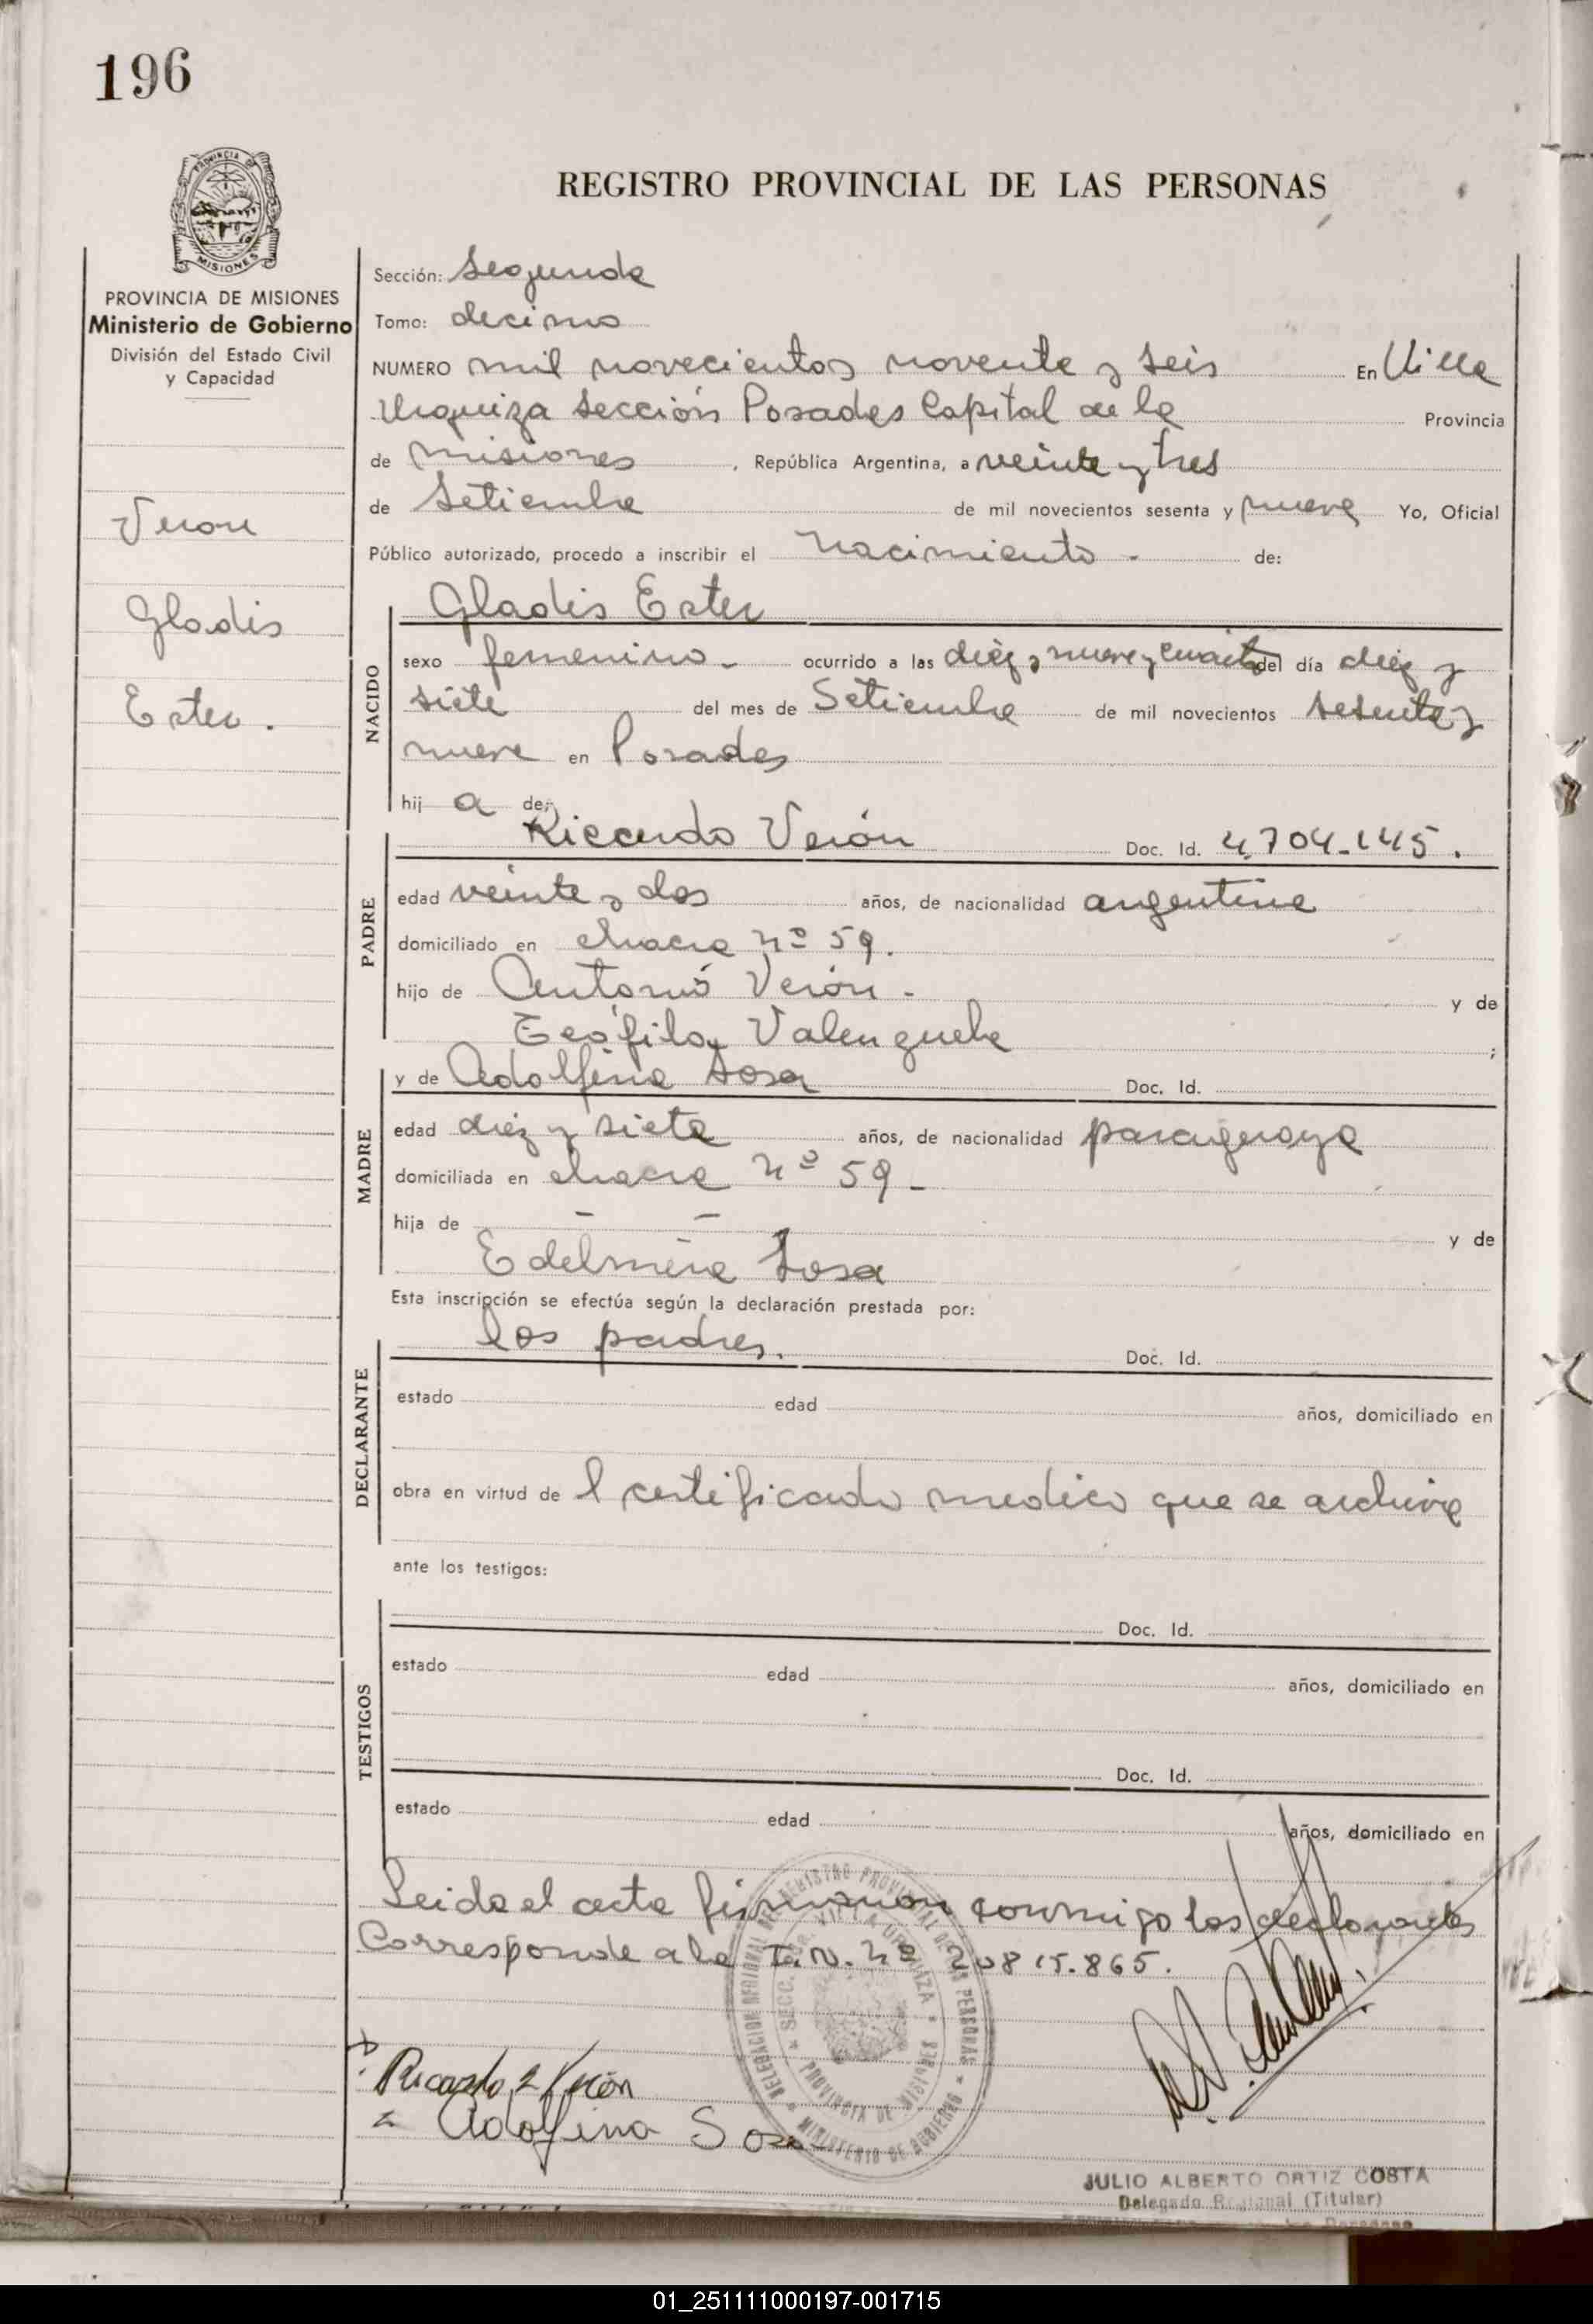 196
REGISTRO PROVINCIAL DE LAS PERSONAS
PROVINCIA DE MISIONES
Ministerio de Gobierno
División del Estado Civil
y Capacidad
Veron
Gladis
Ester.
Sección: Segunda
Tomo: decimo
NUMERO mil novecientos noventa y seis En Villa
Urquiza Sección Posadas Capital de la Provincia
de Misiones, República Argentina, a veinte y tres
de Setiembre de mil novecientos sesenta y nueve Yo, Oficial
Público autorizado, procedo a inscribir el nacimiento - de:
NACIDO
Gladis Ester
sexo femenino - ocurrido a las diéz y nueve y cuarto del día diéz y
siete del mes de Setiembre de mil novecientos sesenta y
nueve en Posadas
hij a de:
PADRE
Ricardo Verón Doc. Id. 4.704.145.
edad veinte y dos años, de nacionalidad argentina
domiciliado en chacra nº 59.
hijo de Antonio Verón - y de
Teófila Valenzuela ;
MADRE
y de Adolfina Sosa Doc. Id.
edad diéz y siete años, de nacionalidad paraguaya
domiciliada en chacra nº 59 -
hija de - - y de
Edelmira Sosa
Esta inscripción se efectúa según la declaración prestada por:
DECLARANTE
los padres. Doc. Id.
estado edad años, domiciliado en
obra en virtud de l certificado medico que se archiva
ante los testigos:
TESTIGOS
Doc. Id.
estado edad años, domiciliado en
Doc. Id.
estado edad años, domiciliado en
Leida el acta firmaron conmigo los declarantes
Corresponde a la I.N. nº 20815.865.
Ricardo Verón
Adolfina Sosa
JULIO ALBERTO ORTIZ COSTA
Delegado Regional (Titular)
01_251111000197-001715